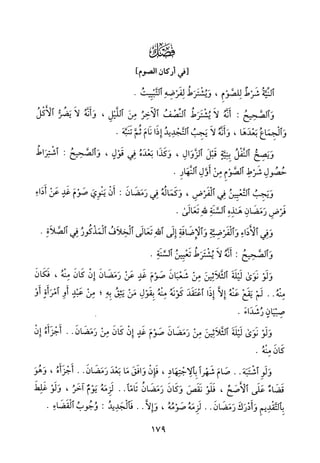 فَصْلٌ
[في أركان الصوم]
ٱلنِّيَّةُ شَرْطٌ لِلصَّوْمِ ، وَيُشْتَرَطُ لِفَرْضِهِ ٱلتَّبْيِيتُ .
وَٱلصَّحِيحُ : أَنَّهُ لاَ يُشْتَرَطُ ٱلنِّصْفُ ٱلآخِرُ مِنَ ٱللَّيْلِ ، وَأَنَّهُ لاَ يَضُرُّ ٱلأَكْلُ
وَٱلْجِمَاعُ بَعْدَهَا ، وَأَنَّهُ لاَ يَجِبُ ٱلتَّجْدِيدُ إِذَا نَامَ ثُمَّ تَنَبَّهَ .
وَيَصِحُّ ٱلنَّفْلُ بِنِيَّةٍ قَبْلَ ٱلزَّوَالِ ، وَكَذَا بَعْدَهُ فِي قَوْلٍ ، وَٱلصَّحِيحُ : ٱشْتِرَاطُ
حُصُولِ شَرْطِ ٱلصَّوْمِ مِنْ أَوَّلِ ٱلنَّهَارِ .
وَيَجِبُ ٱلتَّعْيِينُ فِي ٱلْفَرْضِ ، وَكَمَالُهُ فِي رَمَضَانَ : أَنْ يَنْوِيَ صَوْمَ غَدٍ عَنْ أَدَاءِ
فَرْضِ رَمَضَانِ هَـٰذِهِ ٱلسَّنَةِ للهِ تَعَالَىٰ .
وَفِي ٱلأَدَاءِ وَٱلْفَرْضِيَّةِ وَٱلإِضَافَةِ إِلَى ٱللهِ تَعَالَى ٱلْخِلاَفُ ٱلْمَذْكُورُ فِي ٱلصَّلاَةِ .
وَٱلصَّحِيحُ : أَنَّهُ لاَ يُشْتَرَطُ تَعْيِينُ ٱلسَّنَةِ .
وَلَوْ نَوَىٰ لَيْلَةَ ٱلثَّلاَثِينَ مِنْ شَعْبَانَ صَوْمَ غَدٍ عَنْ رَمَضَانَ إِنْ كَانَ مِنْهُ ، فَكَانَ
مِنْهُ.. لَمْ يَقَعْ عَنْهُ إِلاَّ إِذَا ٱعْتَقَدَ كَوْنَهُ مِنْهُ بِقَوْلِ مَنْ يَثِقُ بِهِ ؛ مِنْ عَبْدٍ أَوِ ٱمْرَأَةٍ أَوْ
صِبْيَانٍ رُشَدَاءَ .
وَلَوْ نَوَىٰ لَيْلَةَ ٱلثَّلاَثِينَ مِنْ رَمَضَانَ صَوْمَ غَدٍ إِنْ كَانَ مِنْ رَمَضَانَ.. أَجْزَأَهُ إِنْ
كَانَ مِنْهُ .
وَلَوِ ٱشْتَبَهَ.. صَامَ شَهْراً بِٱلاِجْتِهَادِ ، فَإِنْ وَافَقَ مَا بَعْدَ رَمَضَانَ.. أَجْزَأَهُ ، وَهُوَ
قَضَاءٌ عَلَى ٱلأَصَحِّ ، فَلَوْ نَقَصَ وَكَانَ رَمَضَانُ تَامّاً.. لَزِمَهُ يَوْمٌ آخَرُ ، وَلَوْ غَلِطَ
بِٱلتَّقْدِيمِ وَأَدْرَكَ رَمَضَانَ.. لَزِمَهُ صَوْمُهُ ، وَإِلاَّ.. فَٱلْجَدِيدُ : وُجُوبُ ٱلْقَضَاءِ .
١٧٩